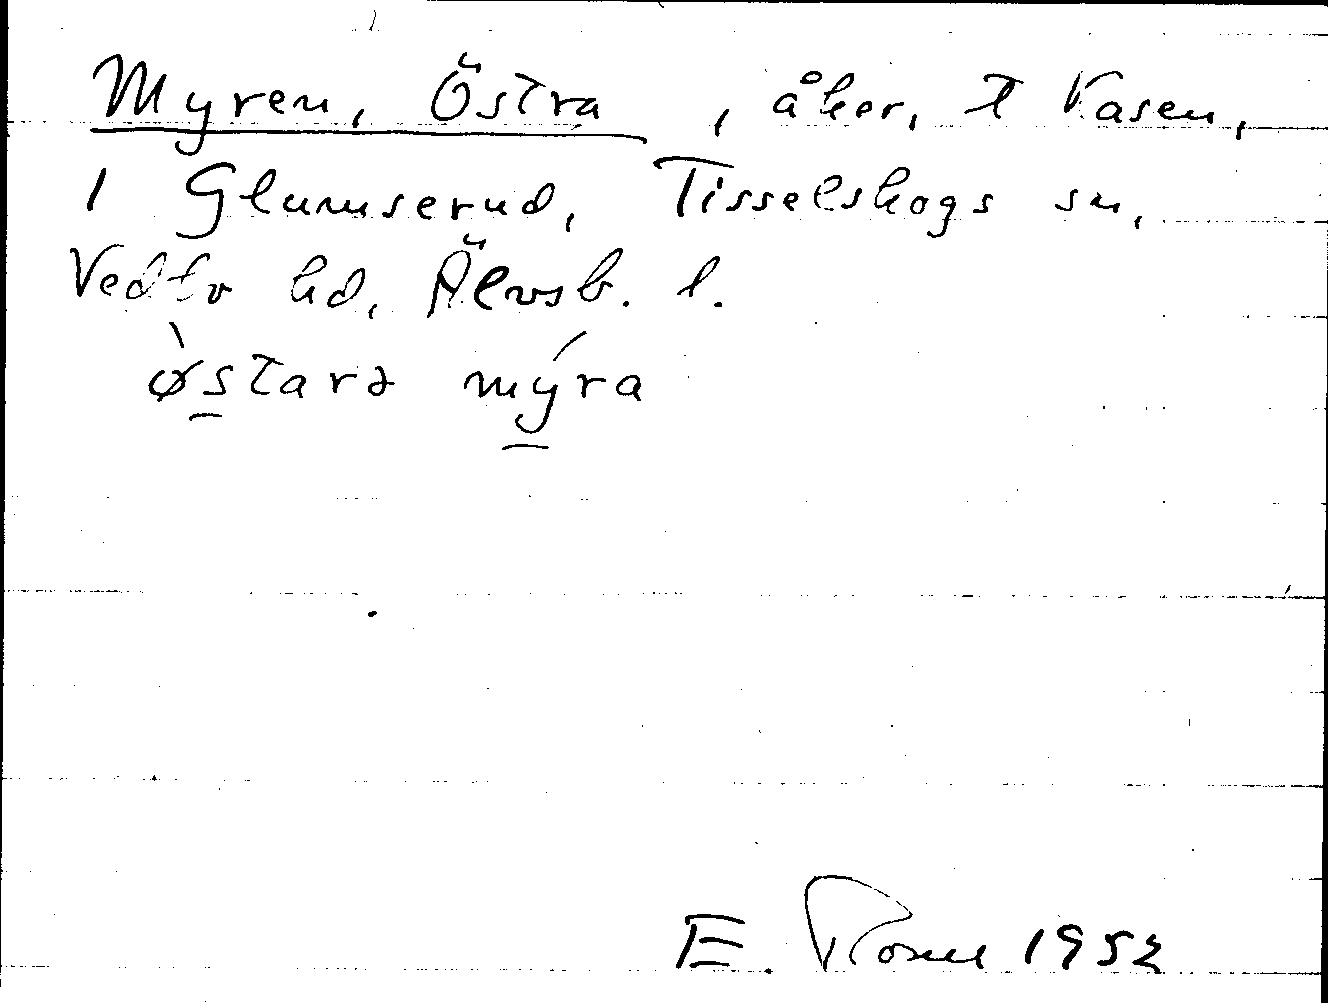 Myren, Östra, åker, t Vasen,
1 Glumserud, Tisselskogs sn,
Vedbo hd, Älvsb. l.
ø̀starə mýra
E. 1952